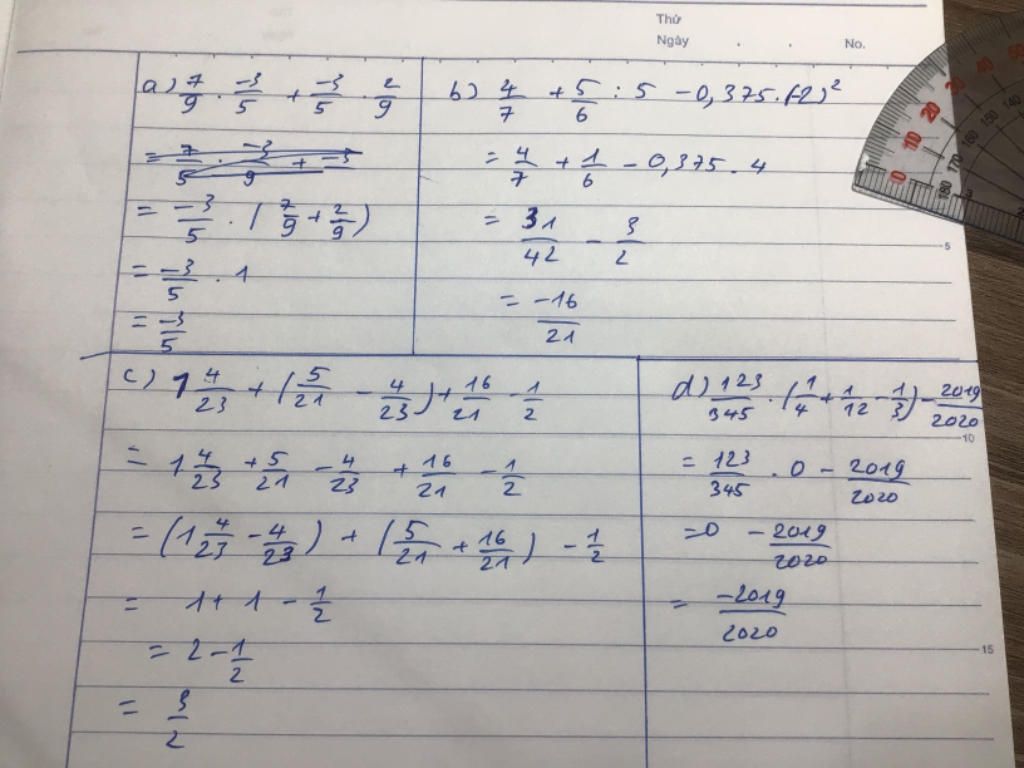 Thứ
Ngày . . No.
a) 7/9 . -3/5 + -3/5 . 2/9
= -3/5 . (7/9 + 2/9)
= -3/5 . 1
= -3/5
b) 4/7 + 5/6 : 5 - 0,375 . (-2)²
= 4/7 + 1/6 - 0,375 . 4
= 31/42 - 3/2
= -16/21
c) 1 4/23 + (5/21 - 4/23) + 16/21 - 1/2
= 1 4/23 + 5/21 - 4/23 + 16/21 - 1/2
= (1 4/23 - 4/23) + (5/21 + 16/21) - 1/2
= 1 + 1 - 1/2
= 2 - 1/2
= 3/2
d) 123/345 . (1/4 + 1/12 - 1/3) - 2019/2020
= 123/345 . 0 - 2019/2020
= 0 - 2019/2020
= -2019/2020
5
10
15
0 10 20 30 40 50
180 170 160 150 140